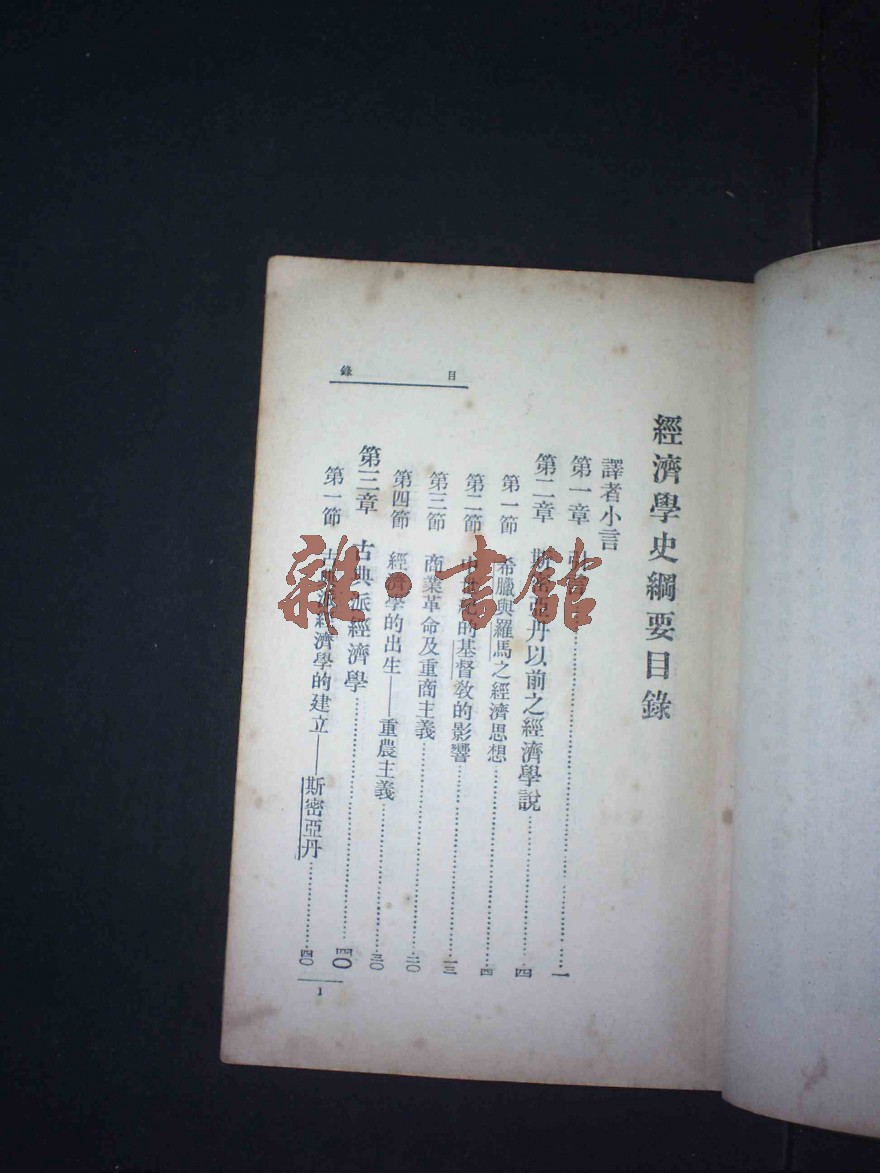 經濟學史綱要目錄
譯者小言
第一章 ……一
第二章 斯密亞丹以前之經濟學說……四
第一節 希臘與羅馬之經濟思想……四
第二節 中世紀的基督教的影響……一三
第三節 商業革命及重商主義……二〇
第四節 經濟學的出生——重農主義……三〇
第三章 古典派經濟學……四〇
第一節 古典派經濟學的建立——斯密亞丹……四〇
目錄
1
雜·書館